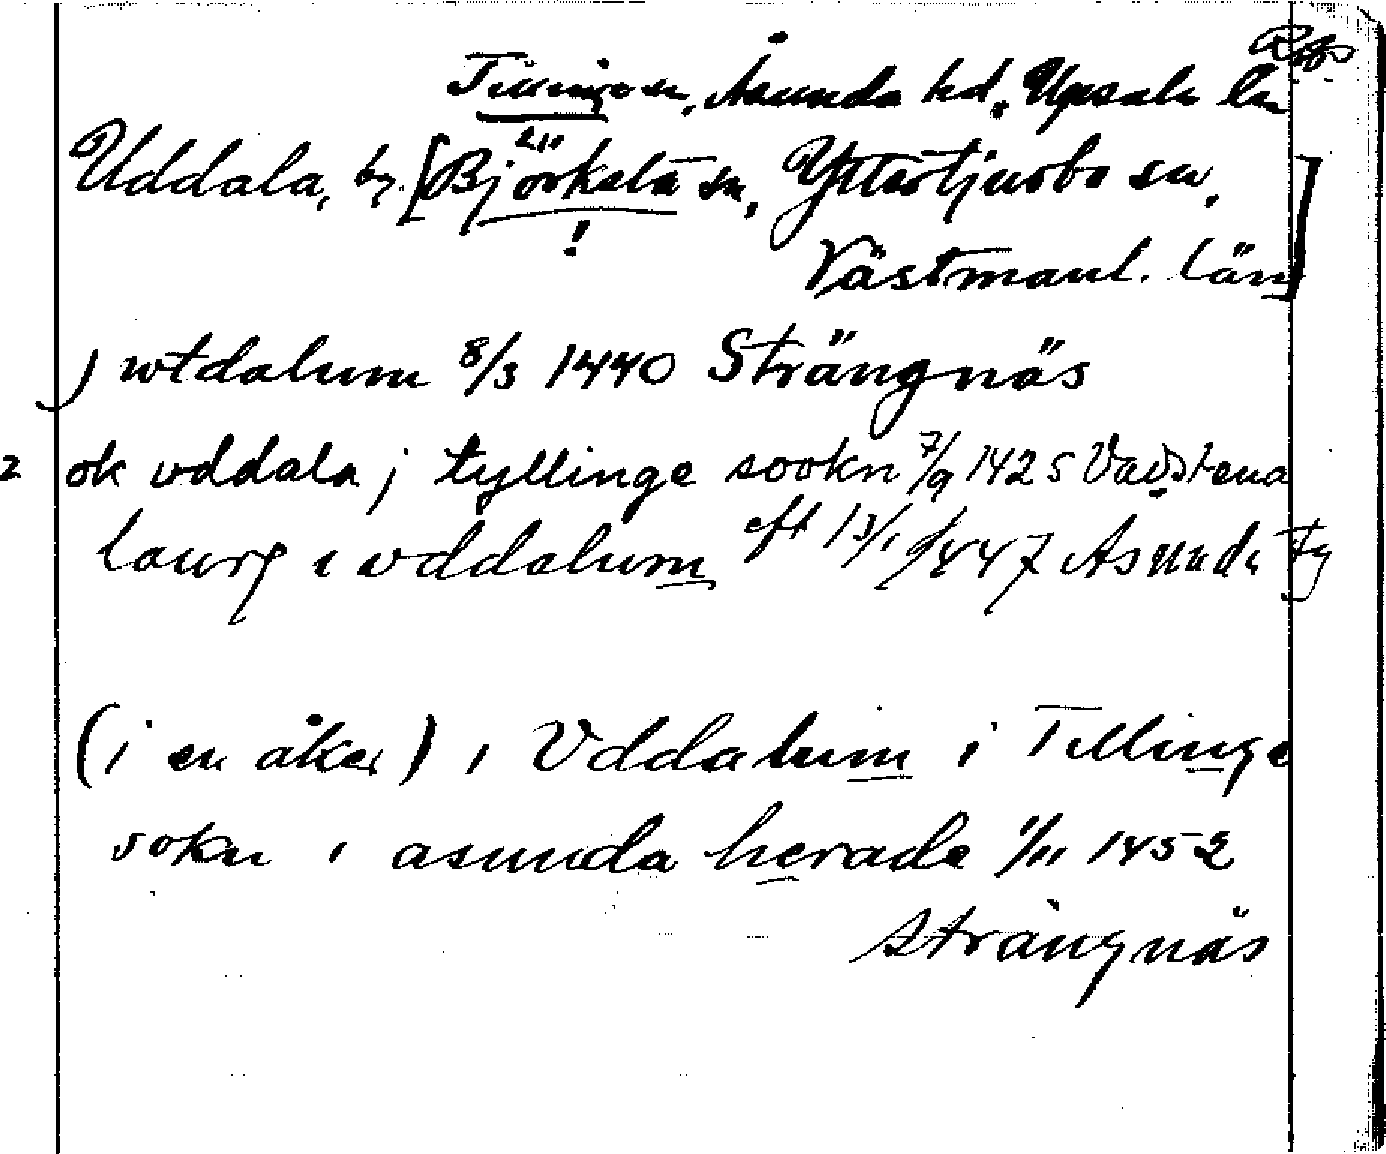 Tillinge sn, Åsunda hd, Upsala län
Uddala, by. [Björksta sn, Yttertjurbo sn,
!
Västmanl. län]
j wtdalum 8/3 1440 Strängnäs
2 ok vddala j tyllinge sookn 7/9 1425 Vadstena
i vddalum eft 13/1 1447 Asunda
(i en åker) i Vddalum i Tillinge
sokn i asunda herade 1/11 1452
Strängnäs